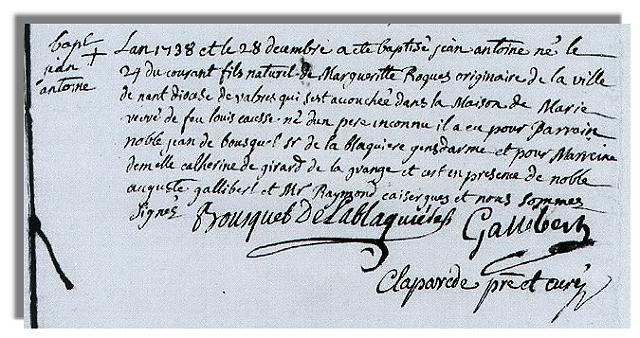 bapt
jean +
antoine
Lan 1738 et le 28 decembre a ete baptisé jean antoine né le
24 du courant fils naturel de Margueritte Roques originaire de la ville
de nant diocese de vabres qui sest acouchée dans la Maison de Marie
veuve de feu louis causse né dun pere inconnu il a eu pour Parrain
noble jean de bousquet sr de la blaquiere gendarme et pour Marreine
demelle catherine de girard de la grange et cest en presence de noble
auguste gallibert et Mr Raymond caisergues et nous sommes
signés Bousquet De Lablaquiére Gallibert
Claparéde ptre et curé